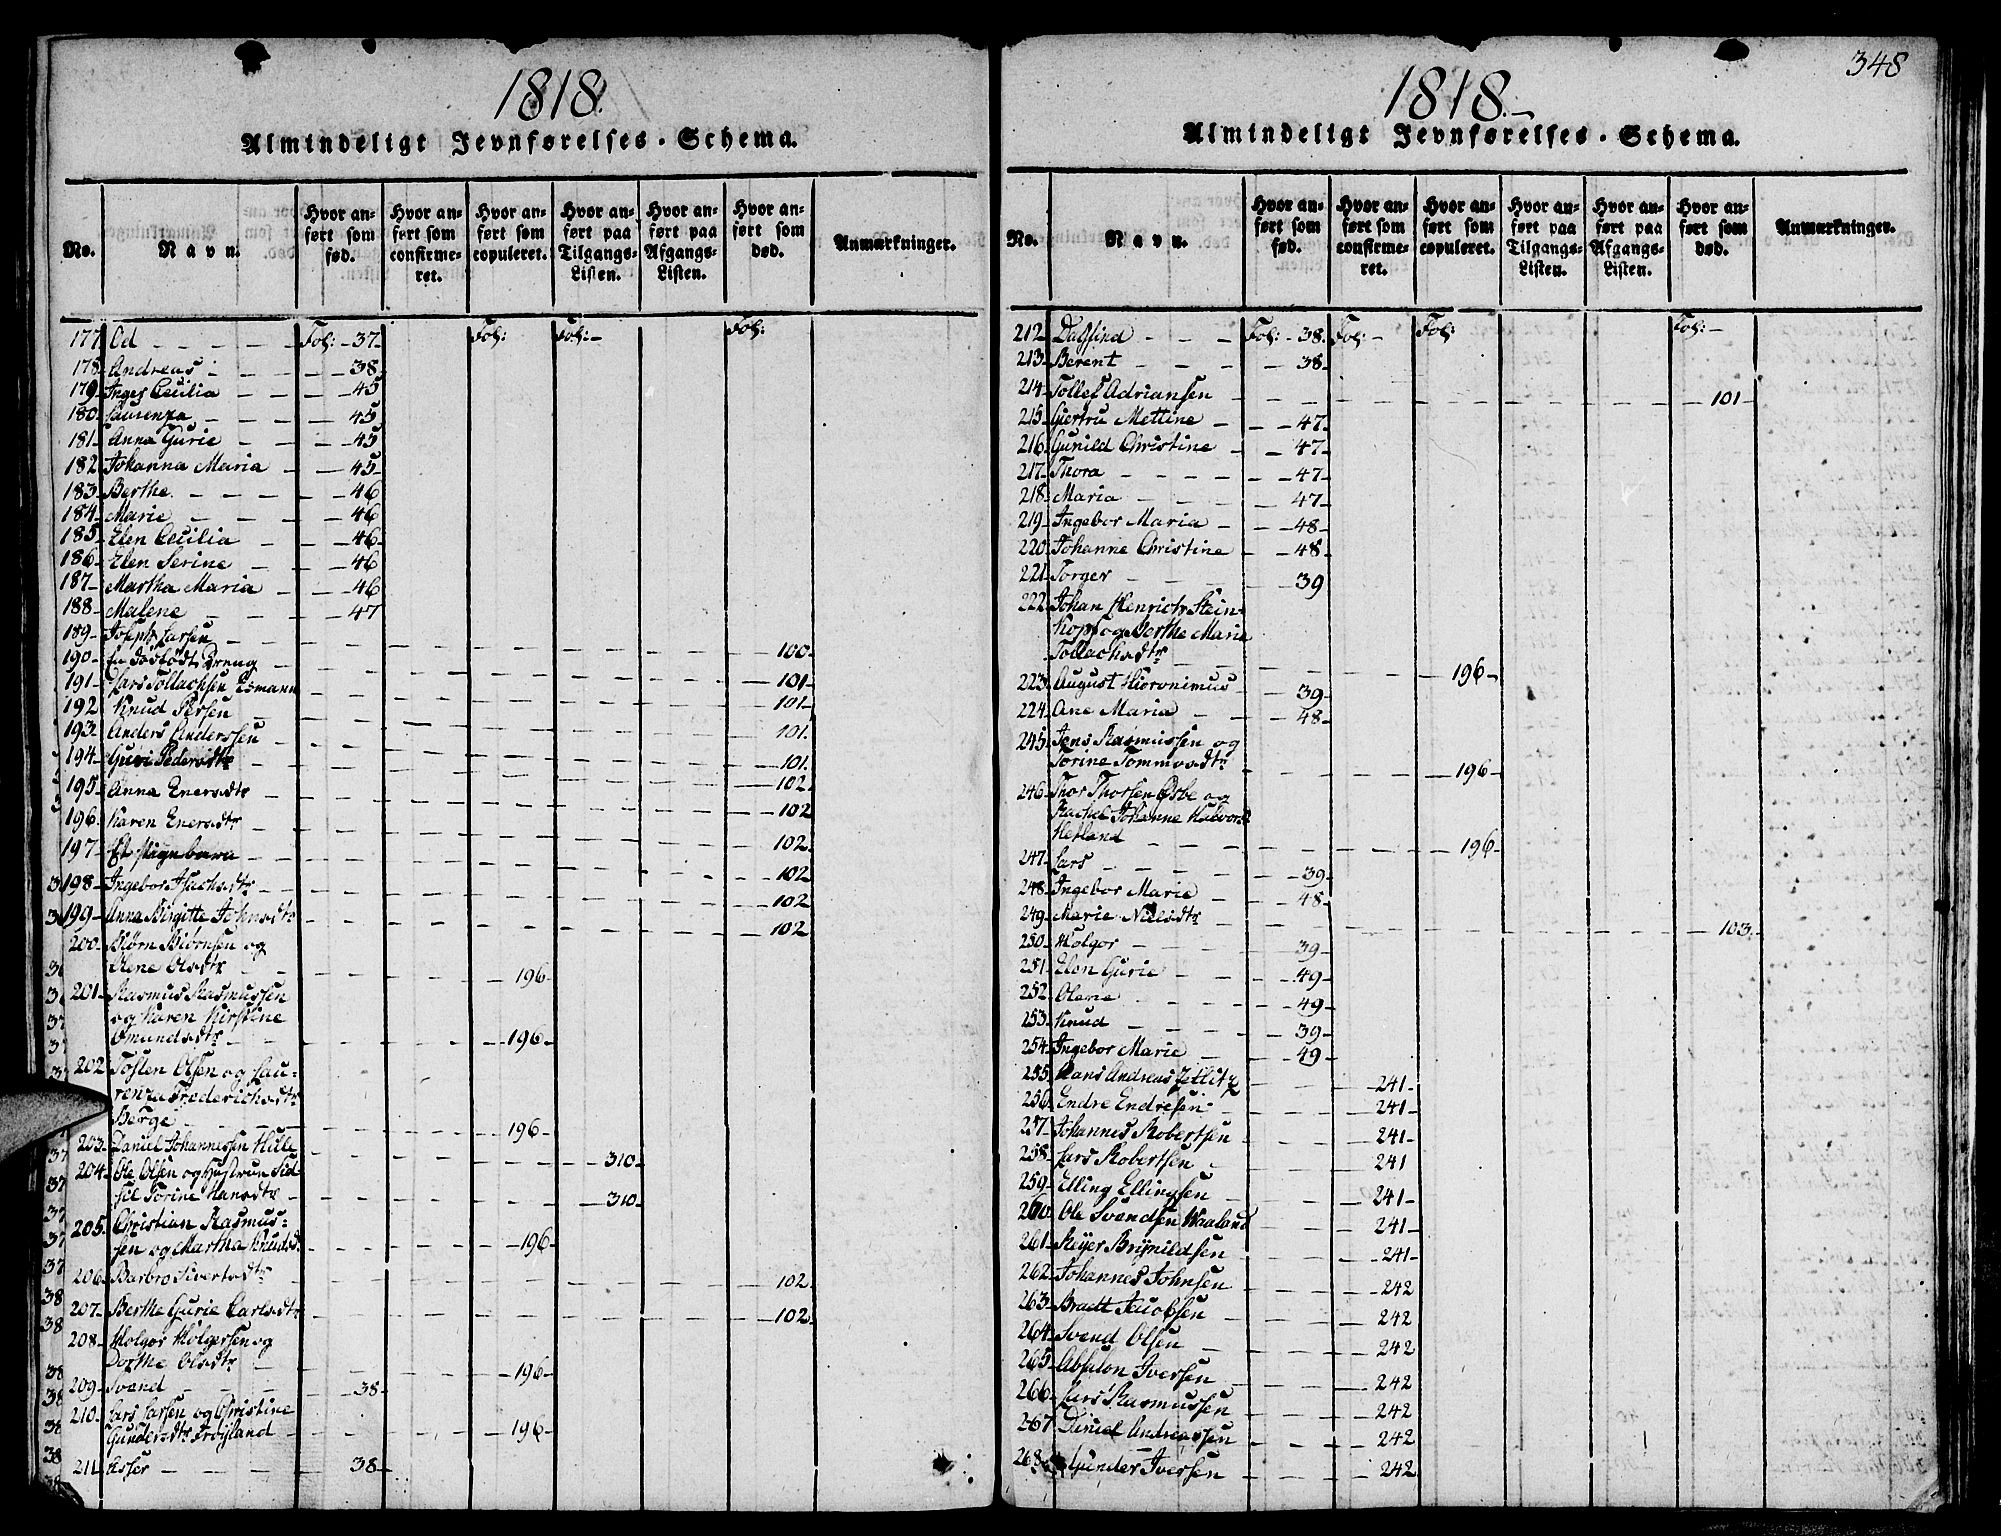 1818.
Almindeligt Jevnførelses-Schema.
No. Navn. Hvor anført som fød. Hvor anført som confirmeret. Hvor anført som copuleret. Hvor anført paa Tilgangs-Listen. Hvor anført paa Afgangs-Listen. Hvor anført som død. Anmærkninger.
177 Od Fol: 37 Fol: Fol: Fol:
178 Andreas 38
179 Inger Cecilia 45
180 Laurenza 45
181 Anna Gurie 45
182 Johanna Maria 45
183 Berthe 46
184 Marie 46
185 Elen Cecilia 46
186 Elen Serine 46
187 Martha Maria 46
188 Malene 47
189 Joseph Larsen 100
190 En dødfødt Dreng 101
191 Lars Tollachsen Esmann 101
192 Knud Persen 101
193 Anders Anderssen 101
194 Guri Pedersdtr 102
195 Anna Enersdtr 102
196 Karen Enersdtr 102
197 Et Pigebarn 102
198 Ingebor Isachsdtr 102
199 Anna Birgitte Johnsdtr 102
200 Biørn Biørnsen og
Elene Olsdtr 196
201 Rasmus Rasmussen
og Karen Kirstine
Omundsdtr 196
202 Tosten Olsen og Lau-
renza Frederichsdtr
Berge 196
203 Daniel Johannessen Hille 310
204 Ole Olsen og Hustrue Sid-
sel Torine Hansdtr 310
205 Christian Rasmus-
sen og Martha Knudsd: 196
206 Barbro Sivertsdtr 102
207 Berthe Gurie Carlsdtr 102
208 Holger Holgersen og
Dorthe Olsdtr 196
209 Svend 38
210 Lars Larsen og Christine
Gundersdtr Frøyland 196
211 Asser 38
348
1818.
Almindeligt Jevnførelses-Schema.
No. Navn. Hvor anført som fød. Hvor anført som confirmeret. Hvor anført som copuleret. Hvor anført paa Tilgangs-Listen. Hvor anført paa Afgangs-Listen. Hvor anført som død. Anmærkninger.
212 Dalsind Fol: 38 Fol: Fol: Fol:
213 Berent 38
214 Tollef Adriansen 101
215 Giertru Mettine 47
216 Gunild Christine 47
217 Thora 47
218 Maria 47
219 Ingebor Maria 48
220 Johanne Christine 48
221 Torger 39
222 Johan Henrich Stein-
kopf og Berthe Maria
Tollachsdtr 196
223 August Hieronimus 39
224 Ane Maria 48
245 Jens Rasmussen og
Torine Tommasdtr 196
246 Thor Thorsen Osbe og
Rachel Johanne Halvors:
Hetland 196
247 Lars 39
248 Ingebor Marie 48
249 Marie Nielsdtr 103
250 Holger 39
251 Elen Gurie 49
252 Olene 49
253 Knud 39
254 Ingebor Marie 49
255 Hans Andreas Zetlitz 241
256 Endre Endresen 241
257 Johannes Robertsen 241
258 Lars Robertsen 241
259 Elling Ellingsen 241
260 Ole Svendsen Waaland 241
261 Reyer Brynildsen 241
262 Johannes Johnsen 242
263 Bradt Jacobsen 242
264 Svend Olsen 242
265 Absalon Iversen 242
266 Lars Rasmussen 242
267 Daniel Andreassen 242
268 Gunder Iversen 242